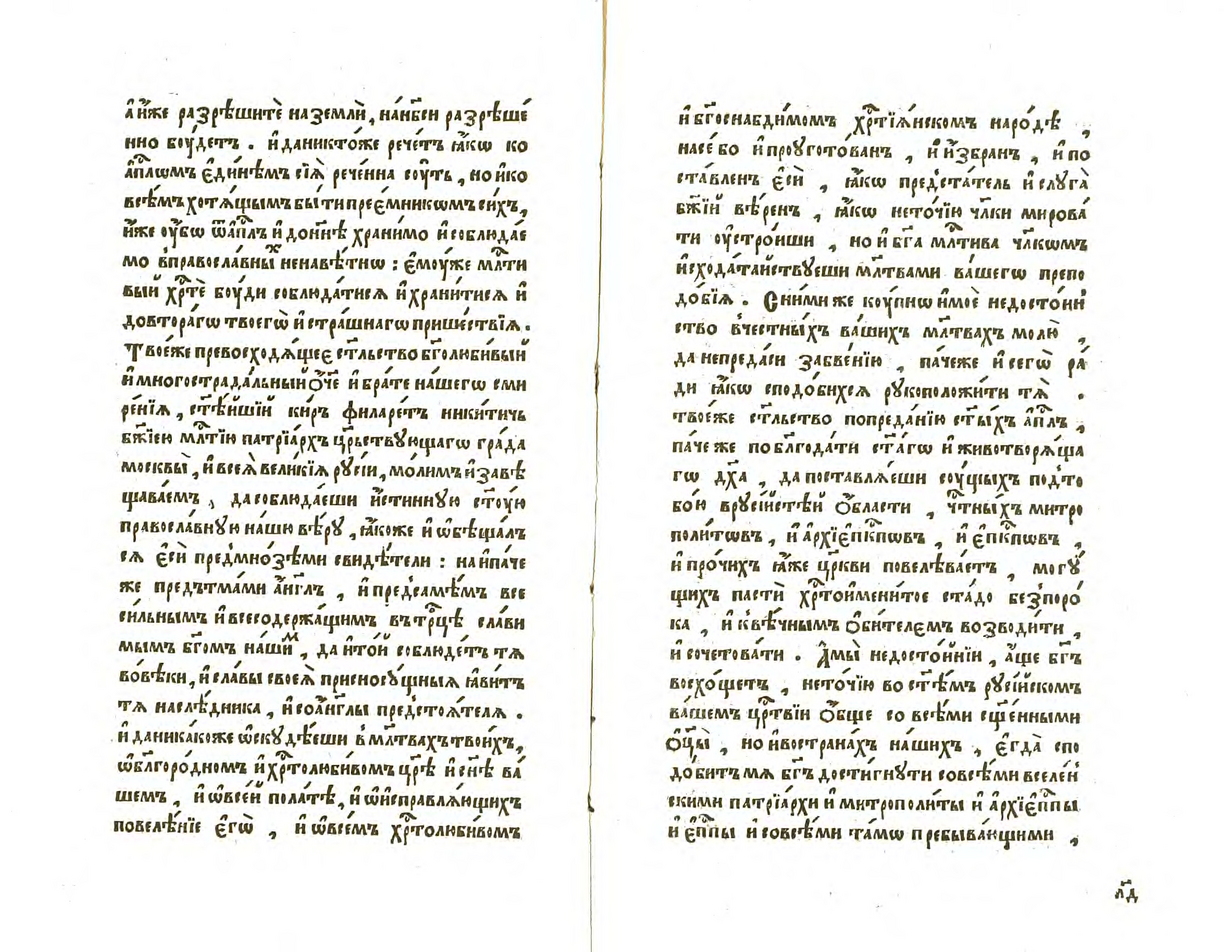 а҆ и҆́же разрѣшитѐ на землѝ, на нб҃си разрѣше́
нно бꙋ́детъ . и҆ да никто́же рече́тъ ꙗ҆́кѡ ко
а҆пⷭ҇лѡмъ є҆ди́нѣмъ сїѧ̀ рече́нна сꙋ́ть , но и҆ ко
всѣ́мъ хотѧ́щымъ бы́ти прее́мникѡмъ си́хъ,
и҆́же ᲂу҆́бѡ ѿ а҆пⷭ҇лъ и҆ до нн҃ѣ храни́мо и҆ соблюда́е
мо в православныⷯ ненавѣ́тнѡ : є҆мꙋ́же млⷭ҇ти
вый хрⷭ҇тѐ бꙋ́ди соблюда́тисѧ и҆ храни́тисѧ и҆
до второ́гѡ твоегѡ̀ и҆ стра́шнагѡ прише́ствїѧ .
Твоѐже превосходѧ́щее ст҃льство бг҃олюби́вый
и҆ многострада́льный ѻ҆́ч҃е и҆ бра́те на́шегѡ сми
ре́нїѧ , ст҃ѣ́йшїй ки́ръ филаре́тъ ники́тичь
бж҃їею млⷭ҇тїю патрїа́рхъ црⷭ҇твꙋющагѡ гра́да
москвы̀ , и҆ всеѧ̀ вели́кїѧ рꙋсі́и, мо́лимъ и҆ завѣ
щава́емъ , да соблюда́еши и҆́стиннꙋю ст҃ꙋ́ю
правосла́внꙋю на́шю вѣ́рꙋ , ꙗ҆́коже и҆ ѡ҆бѣща́лъ
сѧ є҆сѝ пред̾ мно́зѣми свидѣ́тели : наипа́че
же предъ тма́ми а҆́нг҃лъ , и҆ пред̾ самѣ́мъ все
си́льнымъ и҆ вседержа́щимъ въ трⷪ҇цѣ сла́ви
мымъ бг҃омъ на́шиⷨ , да и҆ то́й соблюде́тъ тѧ
во вѣ́ки, и҆ сла́вы своеѧ̀ присносꙋ́щныѧ ꙗ҆ви́тъ
тѧ наслѣ́дника , и҆ со а҆́нг҃лы предстоѧ́телѧ .
и҆ да ника́коже ѡ҆скꙋдѣ́еши в мл҃твахъ твои́хъ,
ѡ҆ благоро́дномъ и҆ хрⷭ҇толюби́вомъ цр҃ѣ и҆ сн҃ѣ ва́
шемъ , и҆ ѡ҆ все́й пола́тѣ, и҆ ѡ҆ и҆справлѧ́ющихъ
повелѣ́нїе є҆гѡ̀ , и҆ ѡ҆ все́мъ хрⷭ҇толюби́вомъ
и҆ бг҃оснабди́момъ хрⷭ҇тїѧ́нскомъ наро́дѣ ,
на се́ бо и҆ проꙋгото́ванъ , и҆ и҆збра́нъ , и҆ по
ста́вленъ є҆сѝ , ꙗ҆́кѡ предста́тель и҆ слꙋга̀
бж҃їй вѣ́ренъ , ꙗ҆́кѡ не то́чїю чл҃ки мирова́
ти ᲂу҆стро́иши , но и҆ бг҃а млⷭ҇тива чл҃кѡмъ
и҆схода́тайствꙋеши мл҃твами ва́шегѡ препо
до́бїѧ . С ни́ми же кꙋ́пнѡ и҆ моѐ недосто́ин
ство в̾ че́стныхъ ва́шихъ мл҃твахъ молю̀ ,
да не преда́си забве́нїю , па́чеже и҆ сегѡ̀ ра́
ди ꙗ҆́кѡ сподо́бихсѧ рꙋкоположи́ти тѧ̀ .
твое́же ст҃льство по преда́нїю ст҃ы́хъ а҆пⷭ҇лъ ,
па́че же по благода́ти ст҃а́гѡ и҆ животворѧ́ща
гѡ дх҃а , да поставлѧ́еши сꙋ́щыхъ под̾ то
бо́ю в рꙋсі́йстѣй ѻ҆́бласти , чⷭ҇тны́хъ митро
поли́тѡвъ , и҆ а҆рхїепⷭ҇кпѡвъ , и҆ є҆пⷭ҇кпѡвъ ,
и҆ про́чихъ ꙗ҆̀же цр҃кви повелѣва́етъ , могꙋ́
щихъ пастѝ хрⷭ҇тои҆мени́тое ста́до без̾ поро́
ка , и҆ к̾ вѣ́чнымъ ѻ҆би́телемъ возводи́ти ,
и҆ сочетова́ти . А҆ мы̀ недосто́йнїи , а҆́ще бг҃ъ
восхо́щетъ , не то́чїю во ст҃ѣ́мъ рꙋсі́йском̾
ва́шемъ црⷭ҇твїи ѻ҆́бще со всѣ́ми сщ҃е́нными
ѻ҆ц҃ы̀ , но и҆ во страна́хъ на́шихъ , є҆гда̀ спо
до́битъ мѧ бг҃ъ дости́гнꙋти со всѣ́ми вселе́н
скими патрїа́рхи и҆ митрополи́ты и҆ а҆рхїепⷭ҇пы
и҆ є҆пⷭ҇пы и҆ со всѣ́ми та́мѡ пребыва́ющими ,
л҃д